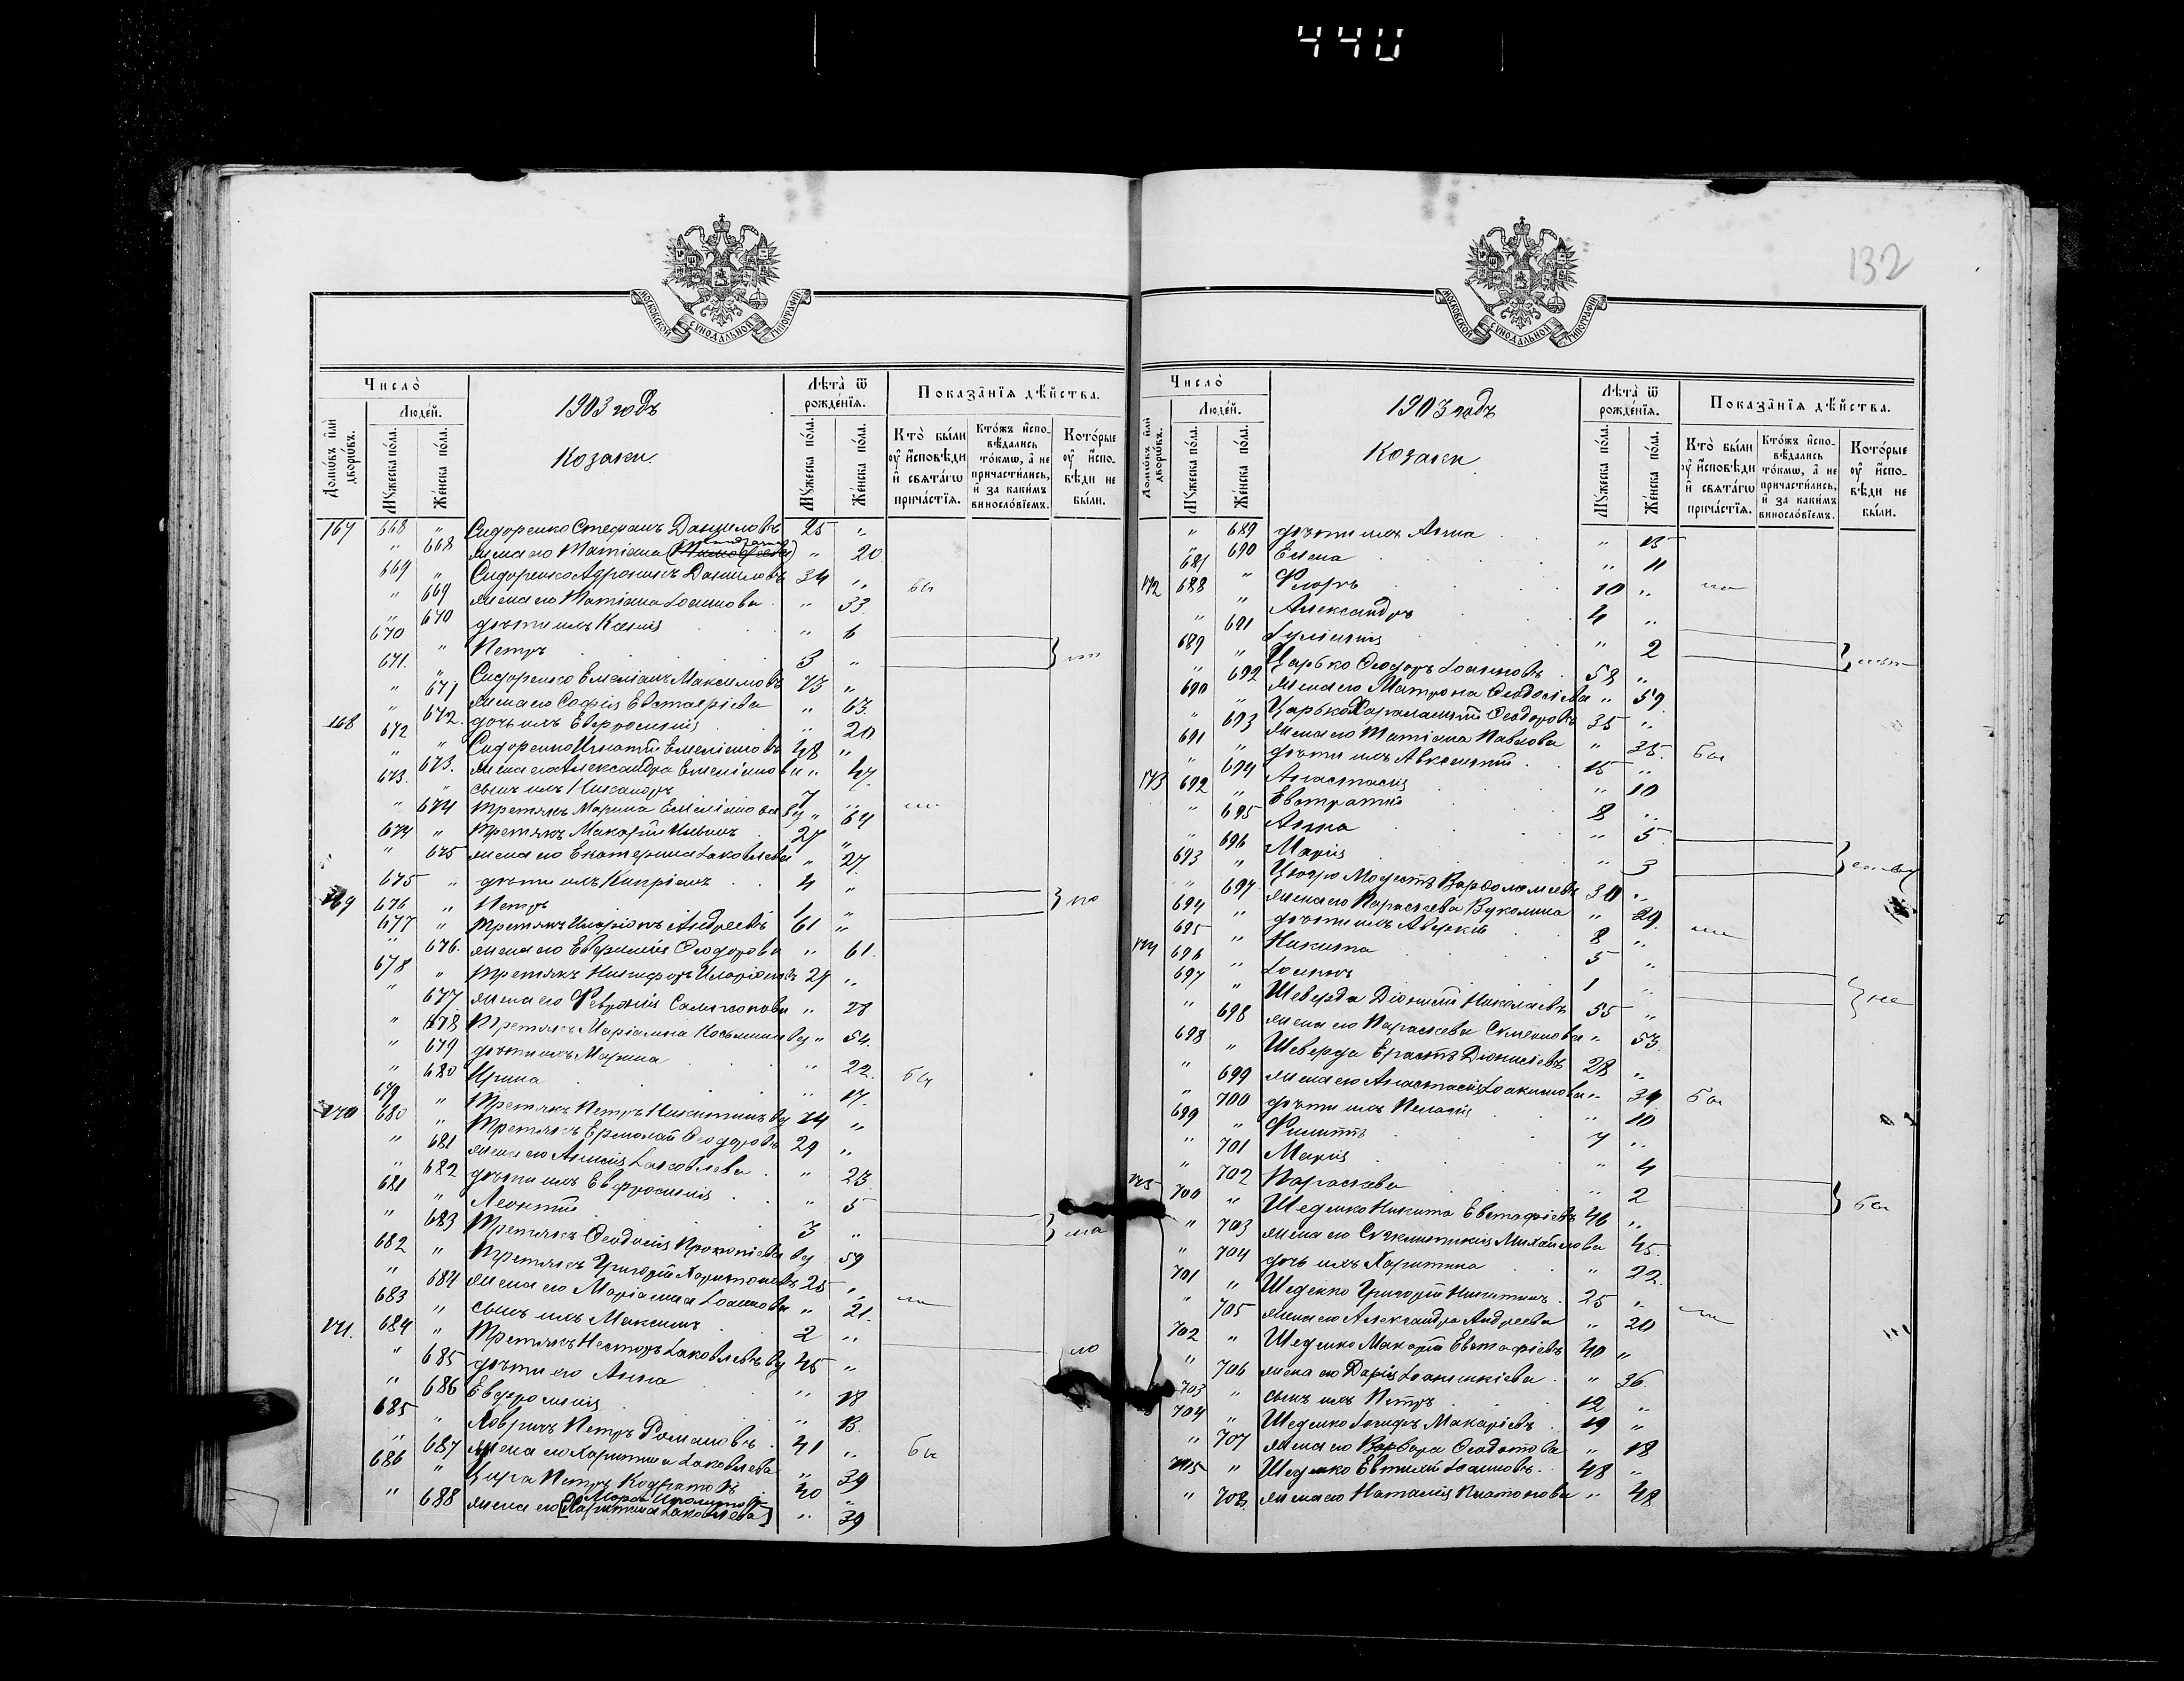 440
132
МОСКОВСКОЙ СУНОДАЛЬНОЙ ТИПОГРАФІИ
Число̀
Люде́й.
Домѡ́въ и҆лѝ дворѡ́въ.
Му́жеска по́ла.
Же́нска по́ла.
1903 годъ
Козаки.
Лѣта̀ ѿ рожде́нїя.
Му́жеска по́ла.
Же́нска по́ла.
Показа̑нїя дѣ́йства.
Кто̀ бы́ли оу҆ и҆сповѣди и҆ свята́гѡ прича́стїя.
Кто́жъ и҆спо- вѣдались то́кмѡ, а҆ не причасти́лись, и҆ за каки́мъ винослові́емъ.
Кото́рые оу҆ и҆спо- вѣди не бы́ли.
167 668 " Сидоренко Стефанъ Даниловъ 25 "
" 668 жена его Татіана " 20
669 " Сидоренко Адроникъ Даниловъ 34 "
" 669 жена его Татіана Іоаннова " 33
" 670 дѣти ихъ Ксенія " 6
670 " Петръ 3 "
671. " Сидоренко Емеліанъ Максимовъ 73 "
" 671 жена его Софія Евстафіева " 63.
" 672. дочь ихъ Евфросинія " 20
168 672 " Сидоренко Игнатій Емеліановъ 48 "
" 673. жена его Александра Емеліанова " 47.
673. " сынъ ихъ Никаноръ 7 "
" 674 Третякъ Марина Емеліанова вд " 64
674 " Третякъ Макарій 27 "
" 675 жена его Екатерина Іаковлева " 27.
675 " дѣти ихъ Кипріанъ 4 "
169 676 " Петръ 1 "
677 " Третякъ Иларіонъ Андреевъ 61 "
" 676. жена его Евфимія Ѳеодорова " 61.
678 " Третякъ Никифоръ Иларіоновъ 27 "
" 677 жена его Феврónія Самсонова " 28
" 678 Третякъ Маріамна Косьмина вд " 54.
" 679 дѣти ихъ Марина " 22.
" 680 Ирина " 17.
679 " Третякъ Петръ Никитинъ вд 74 "
170 680 " Третякъ Ермолай Ѳеодоровъ 29 "
" 681 жена его Анисія Іаковлева " 23.
" 682 дѣти ихъ Евфросинія " 5
681 " Леонтій 3 "
" 683 Третякъ Ѳеодосія Прокопіева вд 59
682 " Третякъ Григорій Харитоновъ 25 "
" 684 жена его Маріамна Іоаннова " 21.
683 " сынъ ихъ Максимъ 2 "
171. 684 " Третякъ Несторъ Іаковлевъ вд 45 "
" 685 дѣти его Анна " 18
" 686 Евфросинія " 13.
685 " Ховрихъ Петръ Романовъ 41 "
" 687 жена его Харитина Іаковлева " 39
686 " Цира Петръ Кодратовъ 40 "
" 688 жена его [Харитина Іаковлева] " 39
Число̀
Люде́й.
Домѡ́въ и҆лѝ дворѡ́въ.
Му́жеска по́ла.
Же́нска по́ла.
1903 годъ
Козаки
Лѣта̀ ѿ рожде́нїя.
Му́жеска по́ла.
Же́нска по́ла.
Показа̑нїя дѣ́йства.
Кто̀ бы́ли оу҆ и҆сповѣди и҆ свята́гѡ прича́стїя.
Кто́жъ и҆спо- вѣдались то́кмѡ, а҆ не причасти́лись, и҆ за каки́мъ винослові́емъ.
Кото́рые оу҆ и҆спо- вѣди не бы́ли.
" 689 дѣти ихъ Анна " 15
" 690 Елена " 11
687 " Флоръ 10 "
172 688 " Александръ 4 "
" 691 Іуліанія " 2
689 " Царько Ѳеодоръ Іоанновъ 58 "
" 692 жена его Матрона Ѳеодосіева " 59
690 " Царько Харалампій Ѳеодоровъ 35 "
" 693 жена его Татіана Павлова " 35.
691 " дѣти ихъ Авксентій 15 "
" 694 Анастасія " 10
173 692 " Евстратій 8 "
" 695 Анна " 5
" 696 Марія " 3
693 " Цюпро Модестъ Варѳоломеевъ 30 "
" 697 жена его Параскева Вуколина " 29.
694 " дѣти ихъ Аверкій 8 "
695 " Никита 5 "
174 696 " Іоаннъ 1 "
697 " Шеверда Діонисій Николаевъ 55 "
" 698 жена его Параскева Симеонова " 53.
698 " Шеверда Ерастъ Діонисіевъ 28 "
" 699 жена его Анастасія Іоакимова " 34
" 700 дѣти ихъ Пелагія " 10
699 " Филиппъ 7 "
" 701 Марія " 4
" 702 Параскева " 2
175 700 " Шеденко Никита Евстафіевъ 46 "
" 703 жена его Сигклитикія Михайлова 45.
" 704 дочь ихъ Харитина " 22.
701 " Шеденко Григорій Никитинъ 25 "
" 705 жена его Александра Андреева " 20
702 " Шеденко Макарій Евстафіевъ 40 "
" 706 жена его Дарія Іоанникіева " 36.
703 " сынъ ихъ Петръ 12 "
704 " Шеденко Іосифъ Макаріевъ 19 "
" 707 жена его Варвара Ѳеодотова " 18
705 " Шеденко Евтихій Іоанновъ. 48 "
" 708 жена его Наталія Платонова " 48